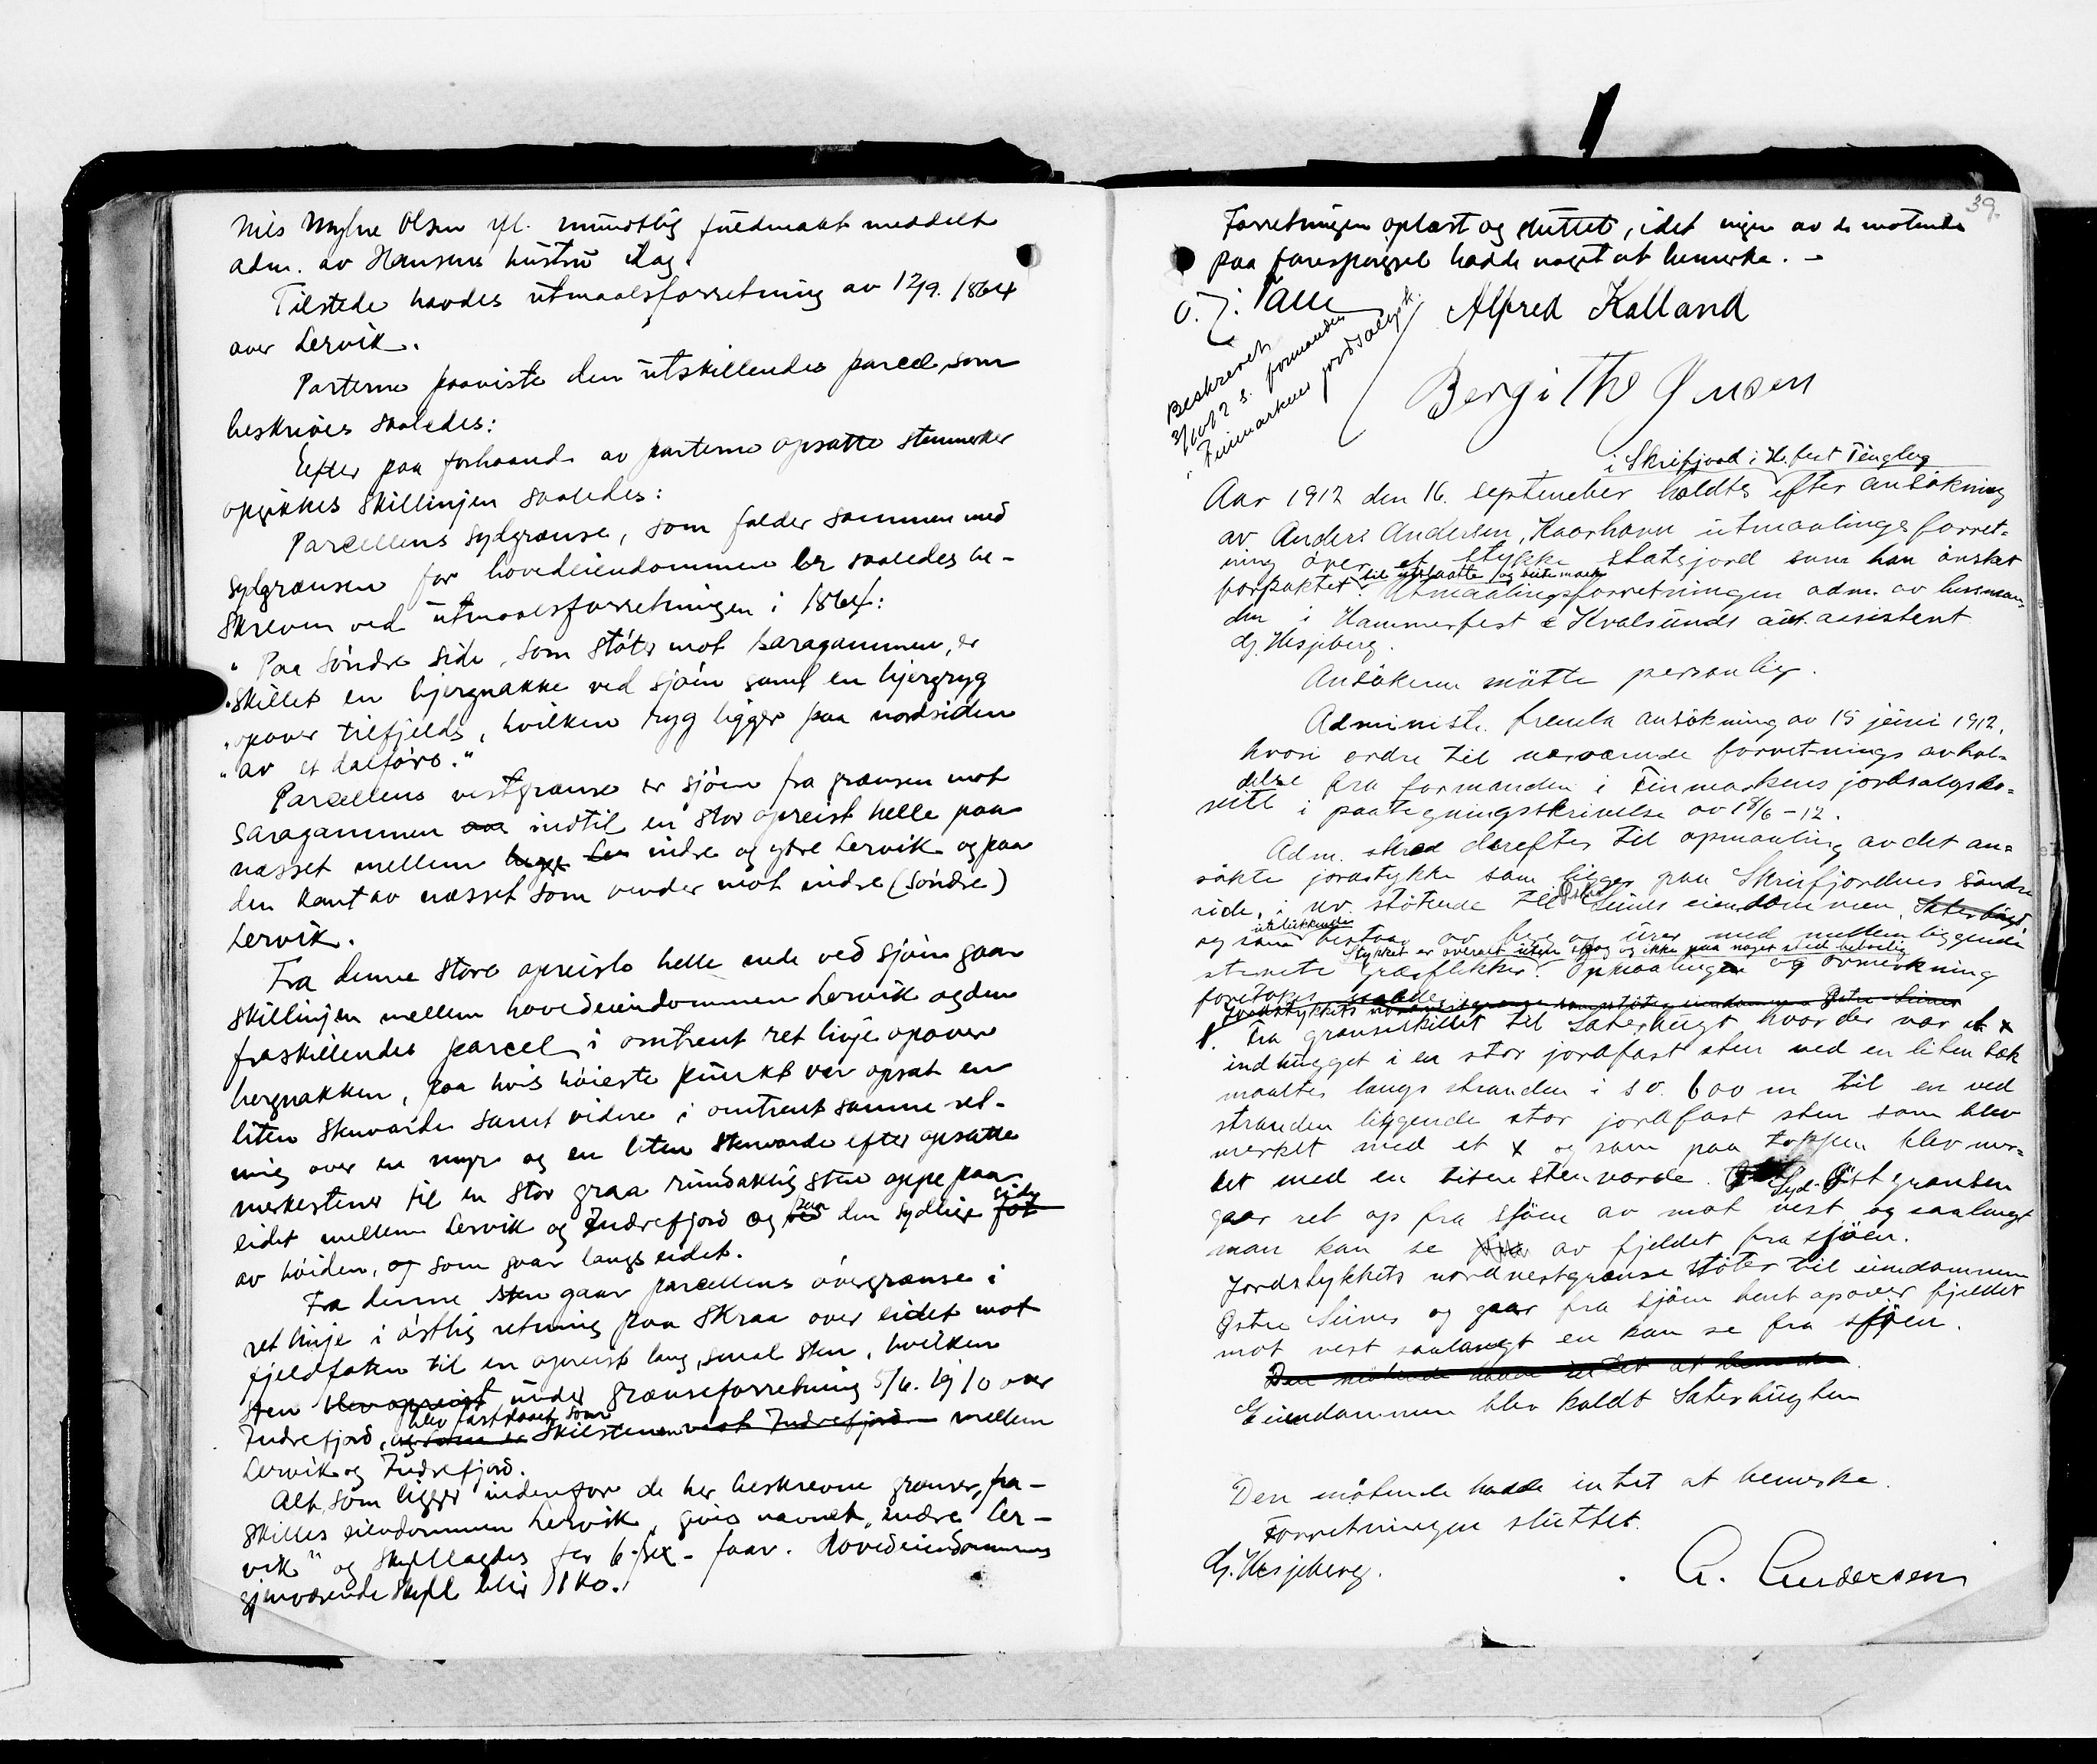 Nils Myhre Olsen ifl. mundtlig fuldmakt meddelt
adm. av Hansens hustru idag.
Tilstede havdes utmaalsforretning av 12/9. 1864
over Lervik.
Parterne paaviste den utskillendes parcel, som
beskrives saaledes:
Efter paa forhaand av parterne opsatte stenmerker
opgikkes skillinjen saaledes:
Parcellens sydgrænse, som falder sammen med
sydgrænsen for hovedeiendommen er saaledes be-
skreven ved utmaalsforretningen i 1864:
"Paa søndre side, som støter mot saragammen, er
"skillet en bjergnakke ved sjøen samt en bjergryg
"opover tilfjelds, hvilken ryg ligger paa nordsiden
"av et dalføre."
Parcellens vestgrænse er sjøen fra grænsen mot
saragammen indtil en stor opreist helle paa
næsset mellem indre og ytre Lervik og paa
den kant av næsset som vender mot indre (søndre)
Lervik.
Fra denne store opreiste helle nede ved sjøen gaar
skillinjen mellem hovedeiendommen Lervik og den
fraskillendes parcel i omtrent ret linje opover
bergnakken, paa hvis høieste punkt var opsat en
liten stenvarde samt videre i omtrent samme ret-
ning over en myr og en liten stenvarde efter opsatte
merkestener til en stor graa rundaktig sten oppe paa
eidet mellem Lervik og Indrefjord og paa den sydlige side
av høiden, og som gaar langs eidet.
Fra denne sten gaar parcellens øvregrænse i
ret linje i østlig retning paa skraa over eidet mot
fjeldfoten til en opreist lang, smal sten, hvilken
sten blev opreist under grænseforretning 5/6. 1910 over
Indrefjord, og som er blev fastslaaet som skilstenen mot Indrefjord mellem
Lervik og Indrefjord.
Alt, som ligger indenfor de her beskrevne grænser, fra-
skilles eiendommen Lervik, gives navnet "indre Ler-
vik" og skyldlagdes for 6 - sex - faar. Hovedeiendommens
gjenværende skyld blir 1 ko.
39.
Forretningen oplæst og sluttet, idet ingen av de møtende
paa forespørgsel hadde noget at bemerke. -
O. J. Alfred Kalland
Beskrevet
3/10 1912 s. formanden
i Finmarkens jordsalgsk.
Bergithe Jensen
i Skrifjord i H.fest Tinglag
Aar 1912 den 16. september holdtes efter ansøkning
av Anders Andersen, Kaarhavn utmaalingsforret-
ning over et stykke statsjord som han ønsket
forpaktet til utslaatte og beitemark. Utmaalingsforretningen adm. av lensman-
den i Hammerfest & Kvalsunds aut. assistent
Hj. Hesjeberg.
Ansøkeren møtte personlig.
Administr. fremla ansøkning av 15 juni 1912,
hvori ordre til nærværende forretnings avhol-
delse fra formanden i Finmarkens jordsalgsko-
mite i paategningsskrivelse av 18/6 - 12.
Adm. skred derefter til opmaaling av det an-
søkte jordstykke som ligger paa Skrifjordens søndre
side, i nv. støtende til Østre Seines eiendommen, Saterbugt
og som utelukkende bestaar av berg og urer med mellemliggende
Stykket er overalt uten skog og ikke paa noget sted beboelig
stenete græsflekker. Opmaalingen og avmerkning
foretokes saaledes:
Jordstykkets nordvestgrænse som støter eiendommen Østre Seines
1. Fra grænseskillet til Saterbugt hvor der var et x
indhugget i en stor jordfast sten ved en liten bæk
maaltes langs stranden i sv. 600 m til en ved
stranden liggende stor jordfast sten som blev
merket med et x og som paa toppen blev mer-
ket med en liten stenvarde. Syd-Øst grænsen
gaar ret op fra sjøen av mot vest og saalangt
man kan se av fjeldet fra sjøen.
Jordstykkets nordvestgrænse støter til eiendommen
Østre Seines og gaar fra sjøen bent opover fjeldet
mot vest saalangt en kan se fra sjøen.
Den møtende hadde intet at bemerke.
Eiendommen blev kaldt Saterbugten
Den møtende hadde intet at bemerke.
Forretningen sluttet.
Hj. Hesjeberg. A. Andersen